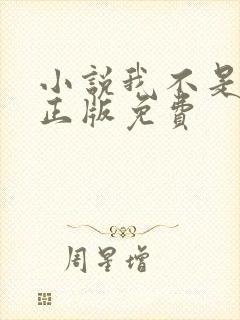 小説我不是
正版免費
周星增